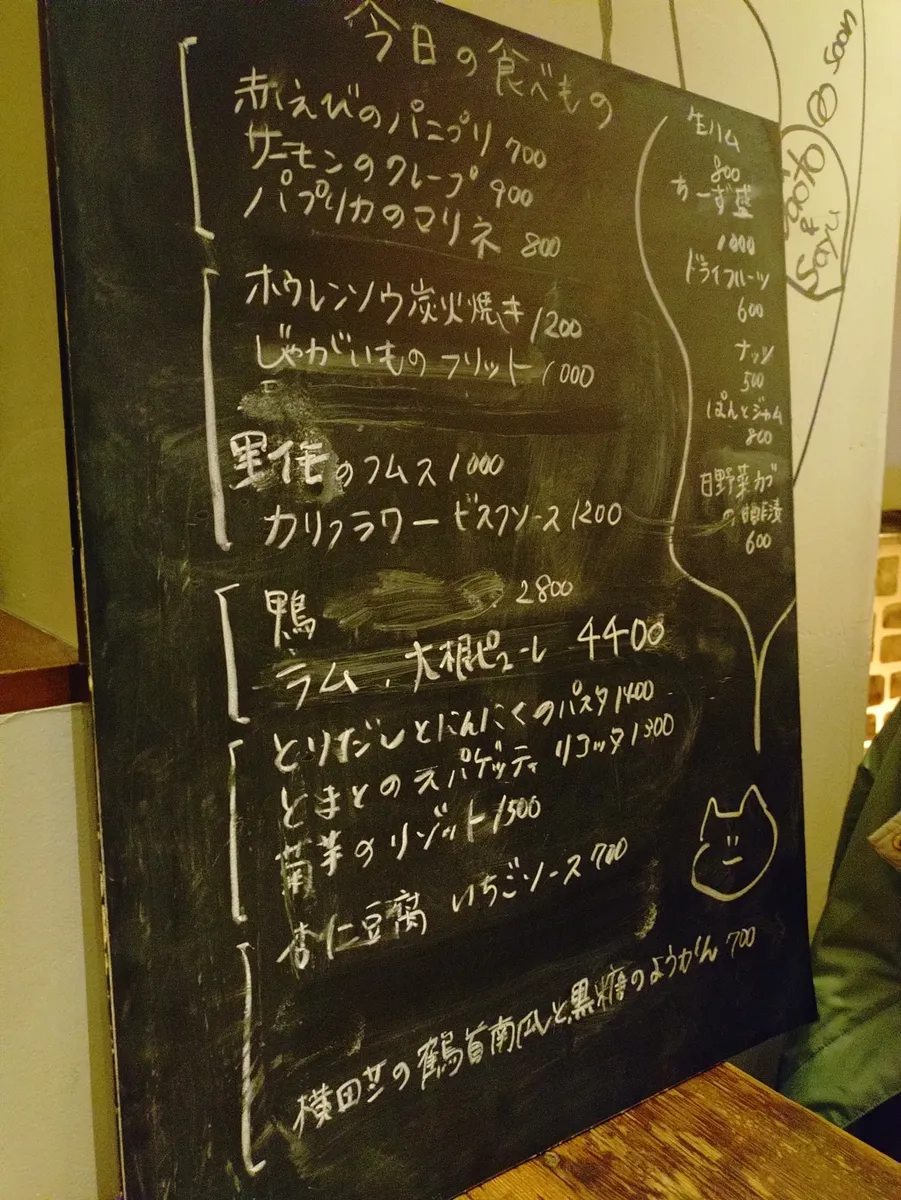 今日の食べもの
赤えびのパニプリ 700
サーモンのクレープ 900
パプリカのマリネ 800
ホウレンソウ炭火焼き 1200
じゃがいものフリット 1000
のフムス 1000
カリフラワー ビスクソース 1200
鴨 2800
ラム、大根ピューレ 4400
とりだしとにんにくのパスタ 1400
とまとのスパゲッティ リコッタ 1300
菊芋のリゾット 1500
杏仁豆腐 いちごソース 700
の鶴首南瓜と黒糖のようかん 700
生ハム
800
ちーず盛
1000
ドライフルーツ
600
ナッツ
500
ぱんとジャム
800
日野菜カブ
の甘酢漬
600
soon
&
Sayu